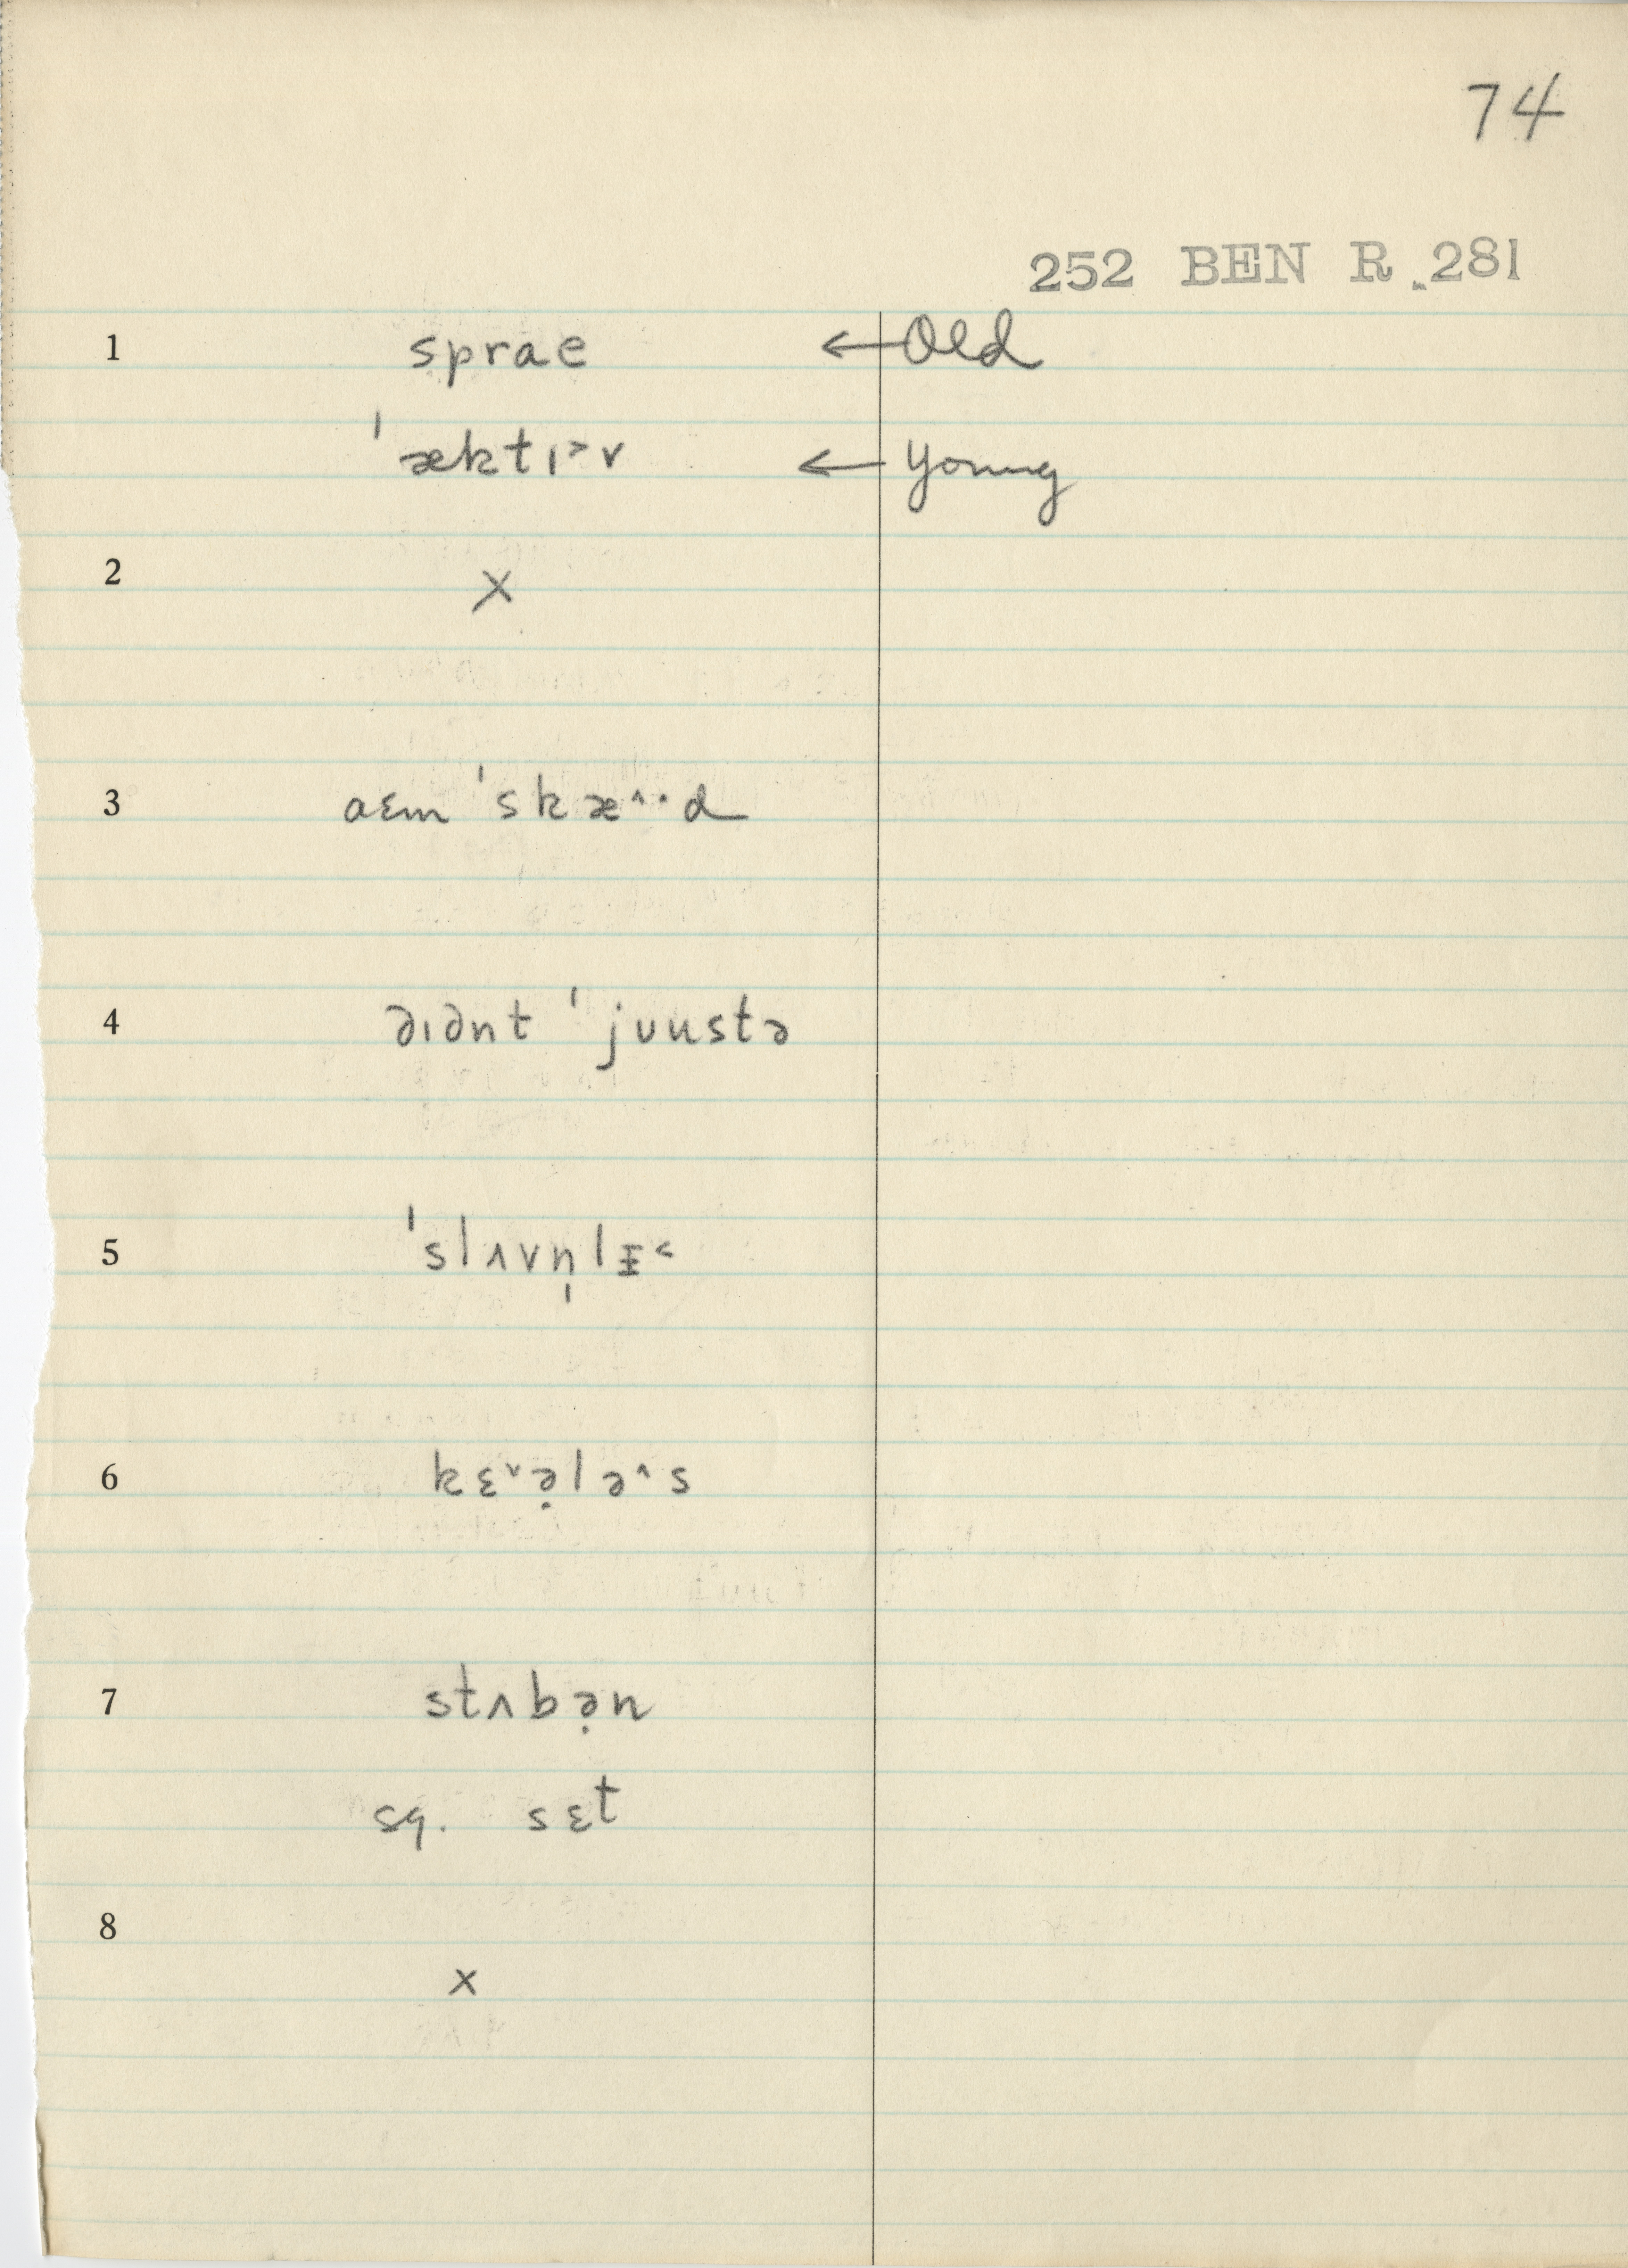 74
252 BEN R. 281
1 sprae ← Old
ˈæktɪ˃v ← Young
2 X
3 aɛm ˈskæ˄·d
4 dɪdnt ˈjuustə
5 ˈslʌvn̩lɪ̵˂
6 kɛ˅ə̣lə˄s
7 stʌbə̣n
sq. sɛt
8 x